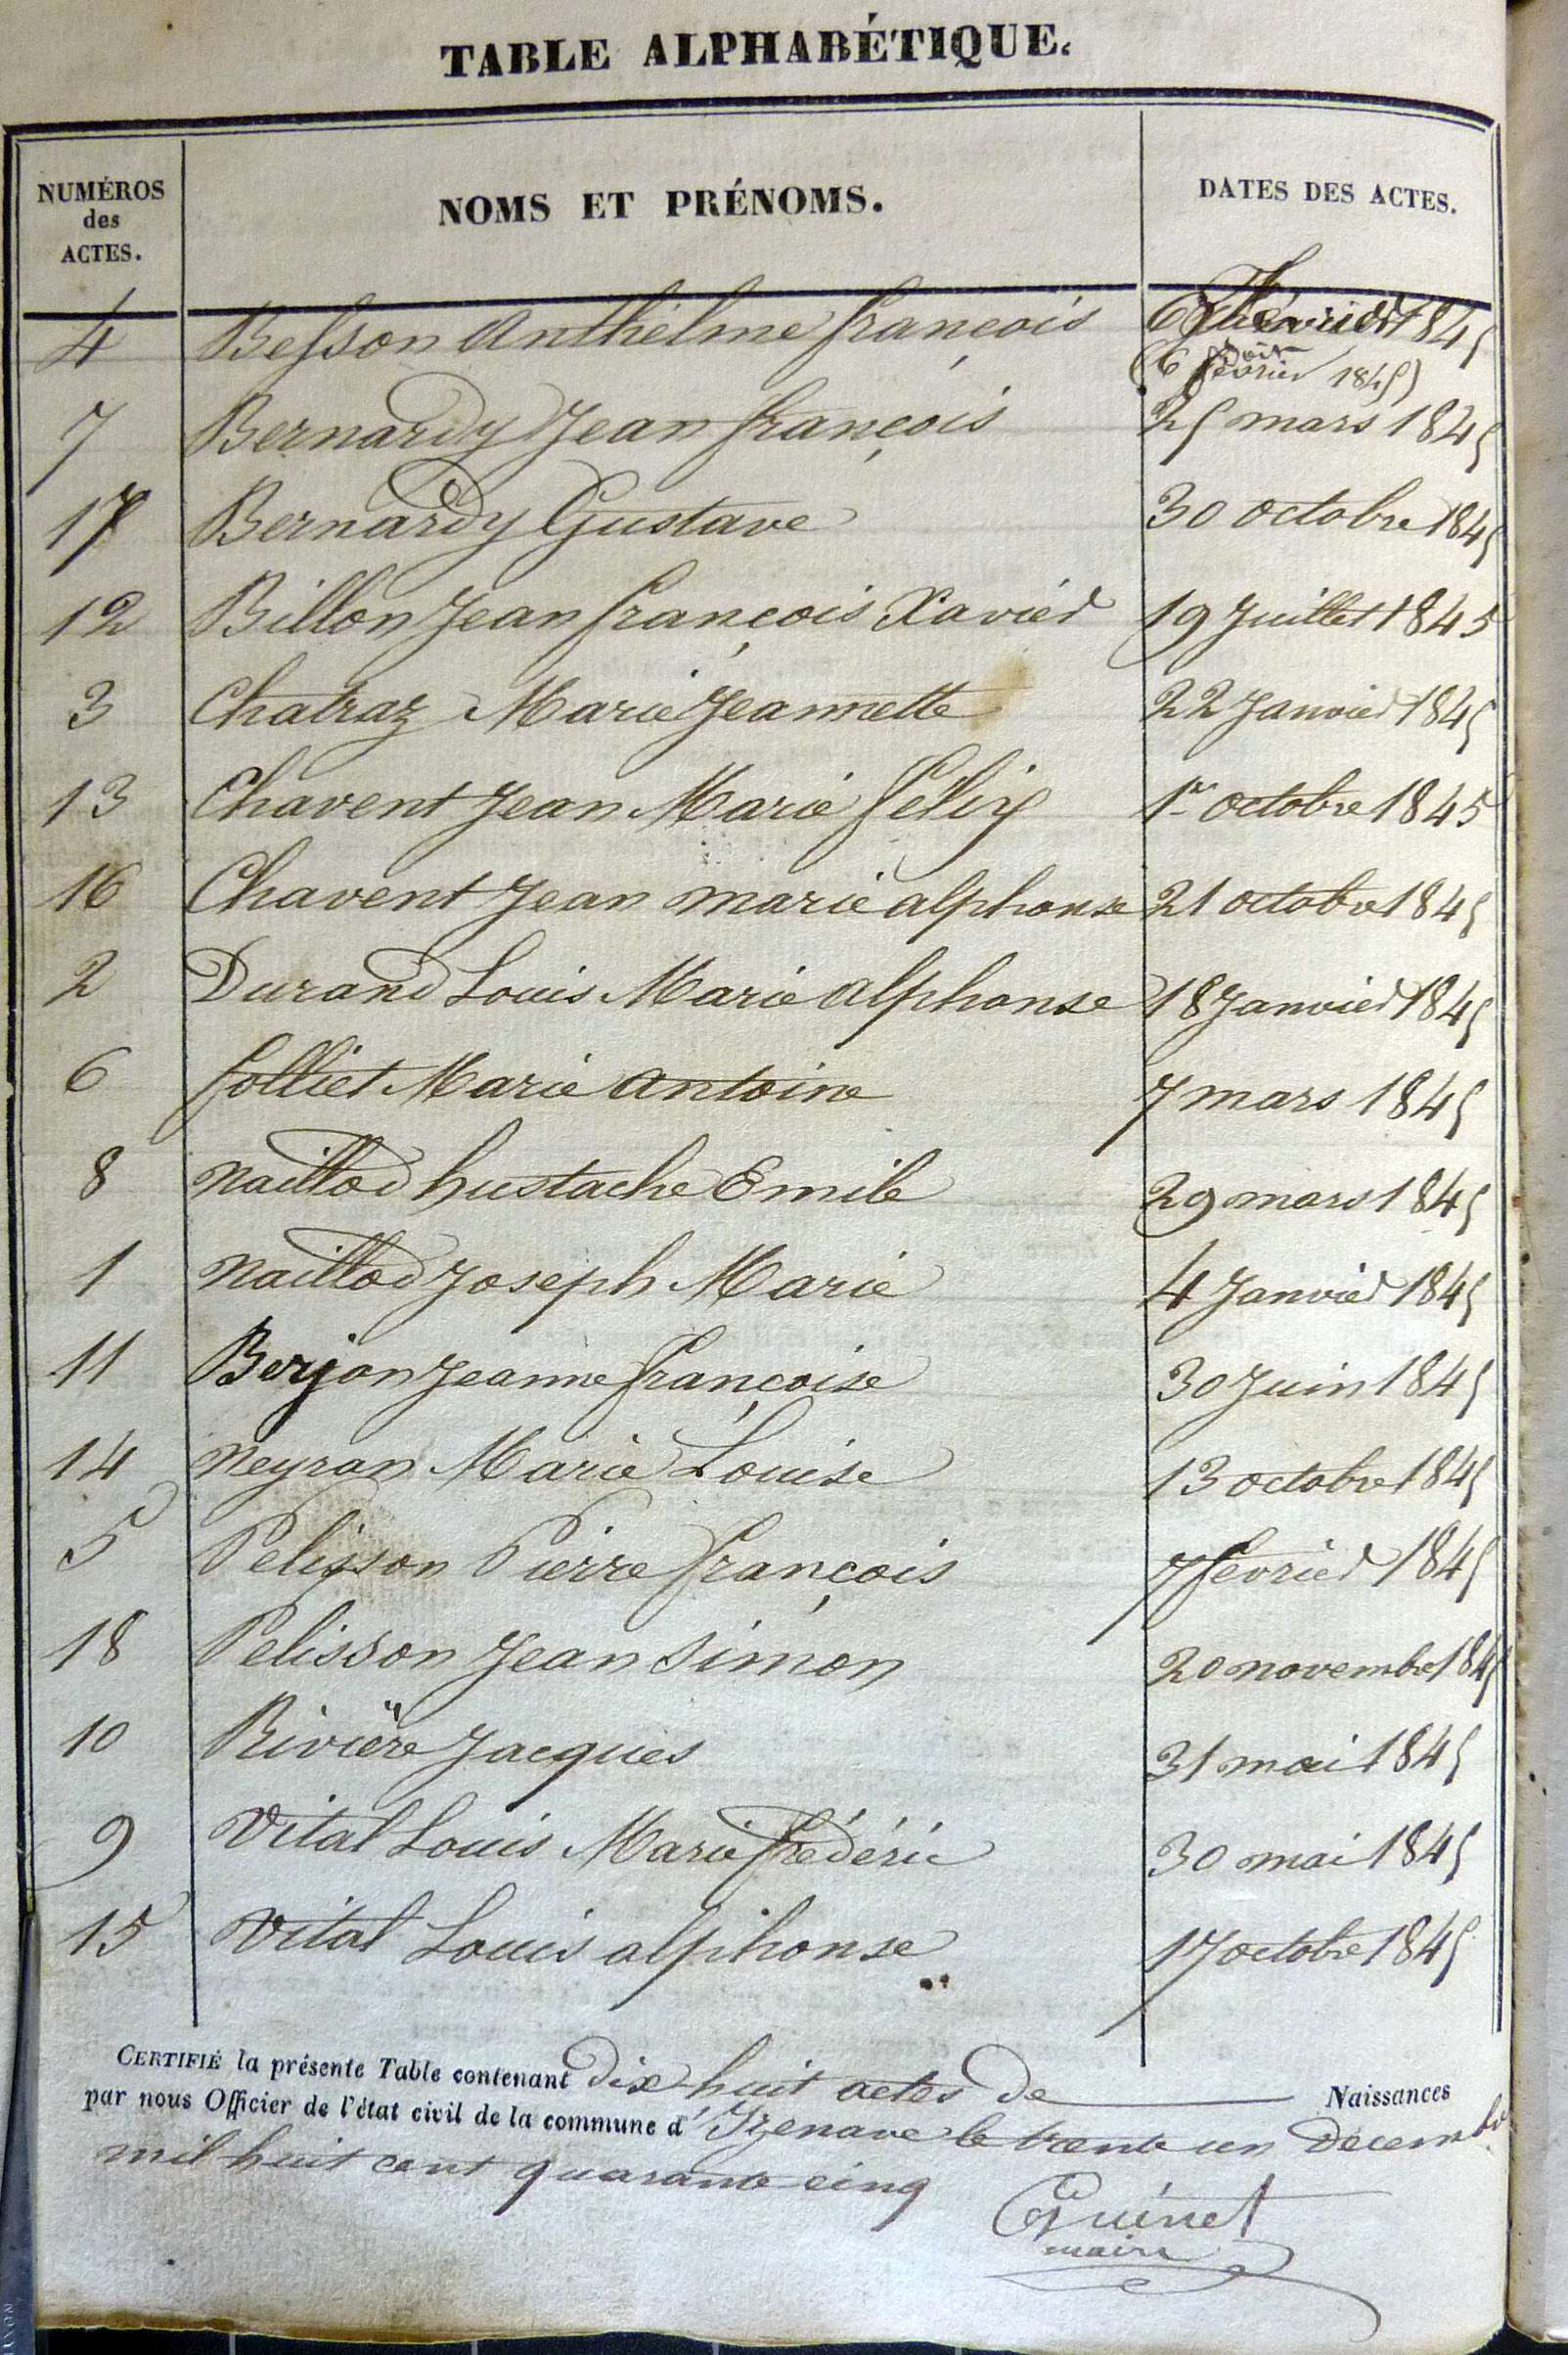 TABLE ALPHABÉTIQUE.
NUMÉROS des ACTES. NOMS ET PRÉNOMS. DATES DES ACTES.
4 Besson Anthelme françois 6 février 1845
(6 février 1845)
7 Bernardy Jean françois 25 mars 1845
17 Bernardy Gustave 30 octobre 1845
12 Billon Jean françois Xavier 19 Juillet 1845
3 Chatraz Marie Jeannette 22 Janvier 1845
13 Chavent Jean Marie félix 1er octobre 1845
16 Chavent Jean marie alphonse 21 octobre 1845
2 Durand Louis Marie alphonse 18 Janvier 1845
6 folliet Marie antoine 7 mars 1845
8 naillod hustache Emile 29 mars 1845
1 naillod Joseph Marie 4 Janvier 1845
11 Berjon Jeanne françoise 30 Juin 1845
14 neyran Marie Louise 13 octobre 1845
5 Pelisson Pierre françois 7 février 1845
18 Pelisson Jean Simon 20 novembre 1845
10 Rivière Jacques 31 mai 1845
9 Vital Louis Marie frédéric 30 mai 1845
15 Vital Louis alphonse 17 octobre 1845
CERTIFIÉ la présente Table contenant dix huit actes de Naissances
par nous Officier de l'état civil de la commune d'Izenave le trente un décembre
mil huit cent quarante cinq
Guinet
maire